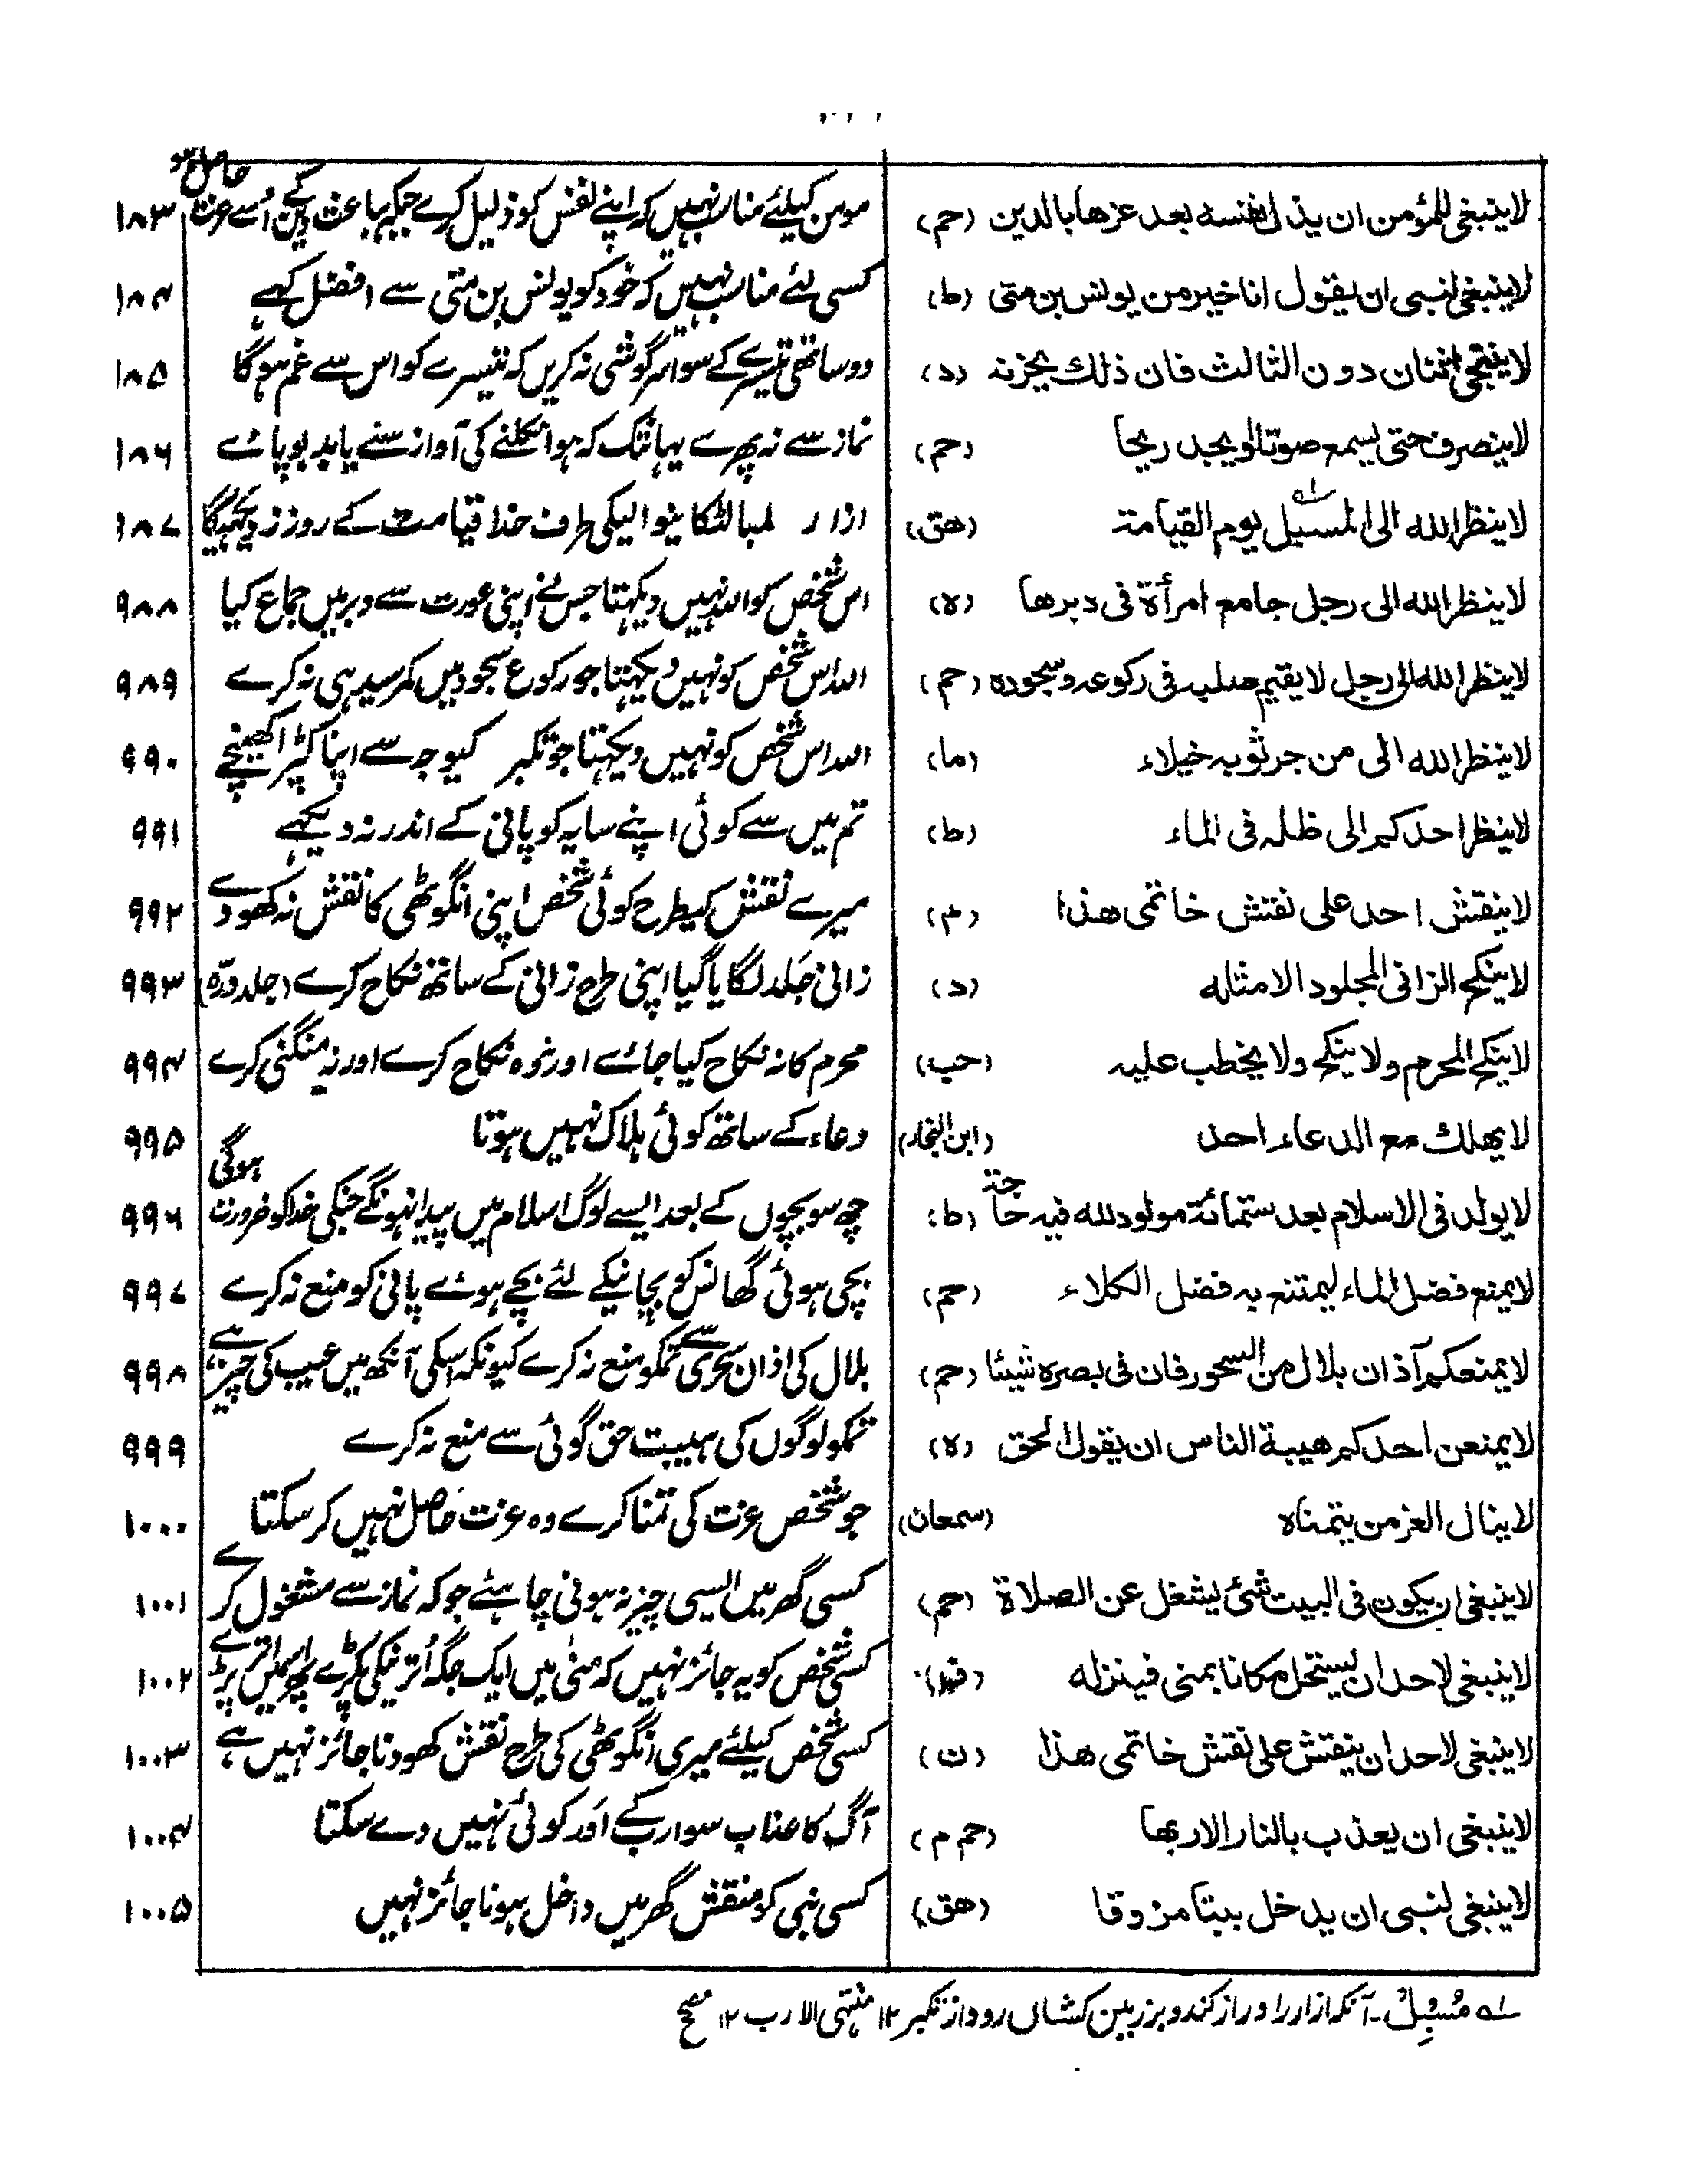 لا ينبغی للمؤمن ان يذل نفسه بعد عزها بالدين (حم) مومن کیلئے مناسب نہیں کہ اپنے نفس کو ذلیل کرے جبکہ باعث دین کے اُسے عزت حاصل ہو ۱۸۳
لا ينبغی لنبی ان يقول انا خير من يونس بن متی (ط) کسی لئے مناسب نہیں کہ خود کو یونس بن متی سے افضل کہے ۱۸۴
لا ينتجی اثنان دون الثالث فان ذلك يحزنه (د) دو ساتھی تیسرے کے سوا سرگوشی نہ کریں کہ تیسرے کو اس سے غم ہوگا ۱۸۵
لا ينصرف حتی يسمع صوتا او يجد ريحا (حم) نماز سے نہ پھرے یہانتک کہ ہوا نکلنے کی آواز سنے یا بدبو پائے ۱۸۶
لا ينظر الله الی المسبل يوم القيامة (هق) ازار لمبا لٹکانیوالیکی طرف خدا قیامت کے روز نہ دیکھیگا ۹۸۷
لا ينظر الله الی رجل جامع امرأة فی دبرها (ه) اس شخص کو اللہ نہیں دیکھتا جس نے اپنی عورت سے دبر میں جماع کیا ۹۸۸
لا ينظر الله الی رجل لا يقيم صلبه فی ركوعه وسجوده (حم) اللہ اس شخص کو نہیں دیکھتا جو رکوع سجود میں کمر سیدہی نہ کرے ۹۸۹
لا ينظر الله الی من جر ثوبه خيلاء (ما) اللہ اس شخص کو نہیں دیکھتا جو تکبر کیوجہ سے اپنا کپڑا کھینچے ۹۹۰
لا ينظر احدكم الی ظله فی الماء (ط) تم میں سے کوئی اپنے سایہ کو پانی کے اندر نہ دیکھے ۹۹۱
لا ينقش احد علی نقش خاتمی هذا (م) میرے نقش کیطرح کوئی شخص اپنی انگوٹھی کا نقش نہ کھودے ۹۹۲
لا ينكح الزانی المجلود الا مثله (د) زانی جَلد لگایا گیا اپنی طرح زانی کے ساتھ نکاح کرے (جلد درّہ) ۹۹۳
لا ينكح المحرم ولا ينكح ولا يخطب عليه (حب) محرم کا نہ نکاح کیا جائے اور نہ وہ نکاح کرے اور نہ منگنی کرے ۹۹۴
لا يهلك مع الدعاء احد (ابن النجار) دعاء کے ساتھ کوئی ہلاک نہیں ہوتا ۹۹۵
لا يولد فی الاسلام بعد ستمائة مولود لله فيه حاجة (ط) چھ سو بچوں کے بعد ایسے لوگ اسلام میں پیدا نہونگے جنکی خدا کو ضرورت ہوگی ۹۹۶
لا يمنع فضل الماء ليمتنع به فضل الكلاء (حم) بچی ہوئی گھانس کو بچانیکے لئے بچے ہوئے پانی کو منع نہ کرے ۹۹۷
لا يمنعكم آذان بلال من السحور فان فی بصره شيئا (حم) بلال کی اذان سحری سے تمکو منع نہ کرے کیونکہ اسکی آنکھ میں عیب کی چیز ہے ۹۹۸
لا يمنعن احدكم هيبة الناس ان يقول الحق (ه) تمکو لوگوں کی ہیبت حق گوئی سے منع نہ کرے ۹۹۹
لا ينال العز من يتمناه (سمعان) جو شخص عزت کی تمنا کرے وہ عزت حاصل نہیں کر سکتا ۱۰۰۰
لا ينبغی ان يكون فی البيت شئ يشغل عن الصلاة (حم) کسی گھر میں ایسی چیز نہ ہونی چاہئے جو کہ نماز سے مشغول کرے ۱۰۰۱
لا ينبغی لاحد ان يستحل مكانا بمنی فينزله کسی شخص کو یہ جائز نہیں کہ منٰی میں ایک جگہ اُترنیکی پکڑے پھر اسمیں اتر پڑے ۱۰۰۲
لا ينبغی لاحد ان ينقش علی نقش خاتمی هذا (ن) کسی شخص کیلئے میری انگوٹھی کی طرح نقش کھودنا جائز نہیں ہے ۱۰۰۳
لا ينبغی ان يعذب بالنار الا ربها (حم م) آگ کا عذاب سوا رب کے اَور کوئی نہیں دے سکتا ۱۰۰۴
لا ينبغی لنبی ان يدخل بيتا مزوقا (هق) کسی نبی کو منقش گھر میں داخل ہونا جائز نہیں ۱۰۰۵
لہ مُسْبِلْ ۔ آنکہ ازار را دراز کند و بر زمین کشاں رود از تکبر ۱۲ منتہی الارب ۱۲ مصحح